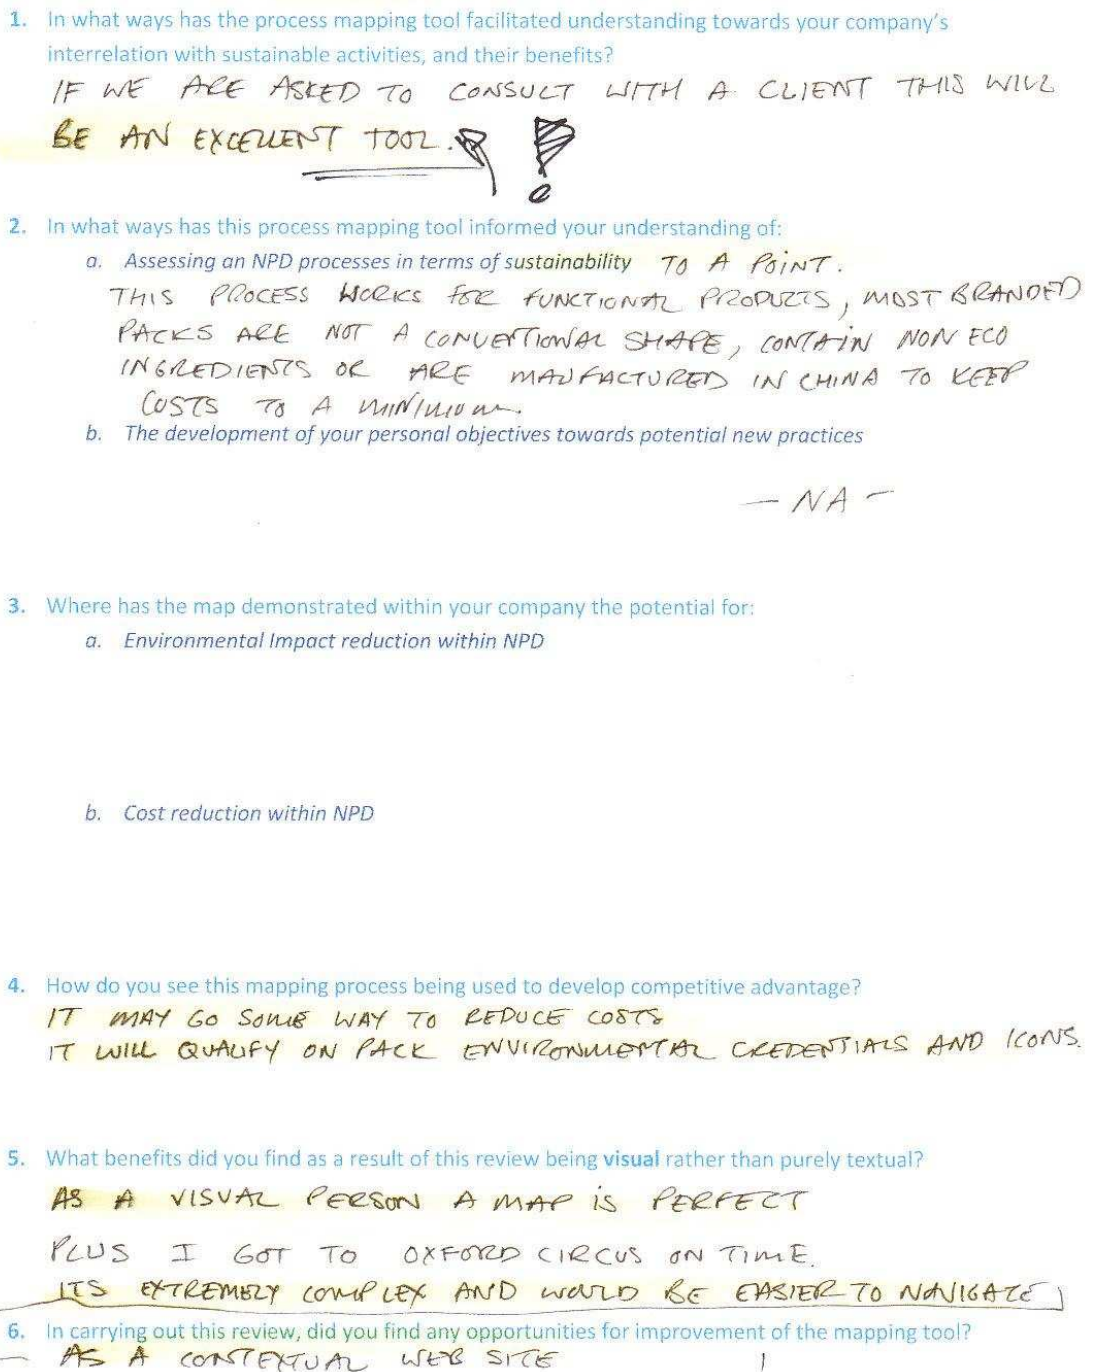 1. In what ways has the process mapping tool facilitated understanding towards your company's
interrelation with sustainable activities, and their benefits?
IF WE ARE ASKED TO CONSULT WITH A CLIENT THIS WILL
BE AN EXCELLENT TOOL. !
2. In what ways has this process mapping tool informed your understanding of:
a. Assessing an NPD processes in terms of sustainability TO A POINT.
THIS PROCESS WORKS FOR FUNCTIONAL PRODUCTS, MOST BRANDED
PACKS ARE NOT A CONVENTIONAL SHAPE, CONTAIN NON ECO
INGREDIENTS OR ARE MANFACTURED IN CHINA TO KEEP
COSTS TO A MINIMUM.
b. The development of your personal objectives towards potential new practices
- NA -
3. Where has the map demonstrated within your company the potential for:
a. Environmental Impact reduction within NPD
b. Cost reduction within NPD
4. How do you see this mapping process being used to develop competitive advantage?
IT MAY GO SOME WAY TO REDUCE COSTS
IT WILL QUALIFY ON PACK ENVIRONMENTAL CREDENTIALS AND ICONS.
5. What benefits did you find as a result of this review being visual rather than purely textual?
AS A VISUAL PERSON A MAP IS PERFECT
PLUS I GOT TO OXFORD CIRCUS ON TIME.
ITS EXTREMELY COMPLEX AND WOULD BE EASIER TO NAVIGATE
6. In carrying out this review, did you find any opportunities for improvement of the mapping tool?
AS A CONTEXTUAL WEB SITE